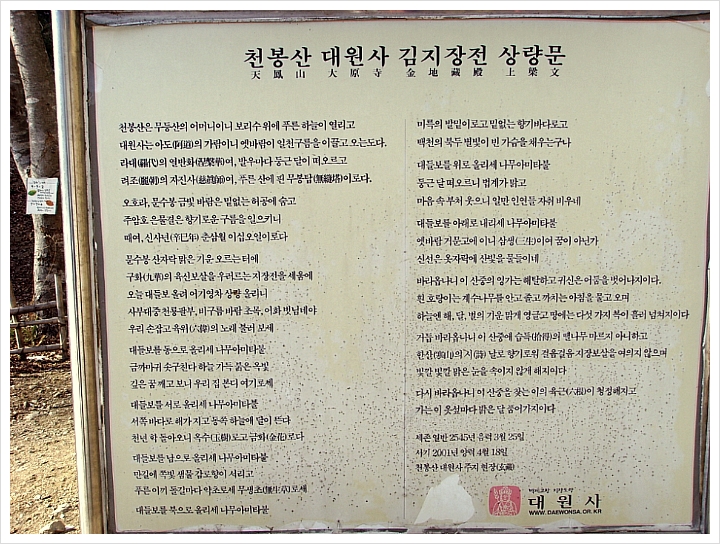 천봉산 대원사 김지장전 상량문
天鳳山 大原寺 金地藏殿 上樑文
천봉산은 무등산의 어머니이니 보리수 위에 푸른 하늘이 열리고
대원사는 아도(阿道)의 가람이니 옛바람이 일천구름을 이끌고 오는도다.
라대(羅代)의 열반화(涅槃華)여, 발우마다 둥근 달이 떠오르고
려조(麗朝)의 자진사(慈眞師)여, 푸른 산에 핀 무봉탑(無縫塔)이로다.
오호라, 문수봉 금빛 바람은 밑없는 허공에 숨고
주암호 은물결은 향기로운 구름을 일으키니
때여, 신사년(辛巳年) 춘삼월 이십오일이로다
문수봉 산자락 맑은 기운 오르는 터에
구화(九華)의 육신보살을 우러르는 지장전을 세울에
오늘 대들보 올려 어기영차 상량 올리니
사부대중 천룡팔부, 비구름 바람 초목, 이화 빛님네야
우리 손잡고 육위(六偉)의 노래 불러 보세
대들보를 동으로 올리세 나무아미타불
금까마귀 솟구친다 하늘 가득 붉은 옥빛
깊은 꿈 깨고 보니 우리 집 본디 여기로세
대들보를 서로 올리세 나무아미타불
서쪽 바다로 해가 지고 동쪽 하늘에 달이 뜬다
천년 학 돌아오니 옥수(玉樹)로고 금화(金花)로다
대들보를 남으로 올리세 나무아미타불
만길에 쪽빛 샘물 감로향이 서리고
푸른 이끼 돌길마다 약초로세 무생초(無生草)로세
대들보를 북으로 올리세 나무아미타불
미륵의 발밑이로고 밑없는 향기바다로고
백천의 북두 별빛이 빈 가슴을 채우는구나
대들보를 위로 올리세 나무아미타불
둥근 달 떠오르니 법계가 밝고
마음 속 부처 웃으니 일만 인연들 자취 비우네
대들보를 아래로 내리세 나무아미타불
옛바람 거문고에 이니 삼생(三生)이어 꿈이 아닌가
신선은 옷자락에 산빛을 물들이네
바라옵나니 이 산중의 잉가는 해탈하고 귀신은 어둠을 벗어나지이다.
흰 호랑이는 계수나무를 안고 졸고 까치는 아침을 물고 오며
하늘엔 해, 달, 별의 기운 맑게 영글고 땅에는 다섯 가지 복이 흘러 넘쳐지이다
거듭 바라옵나니 이 산중에 습득(拾得)의 땔나무 마르지 아니하고
한산(寒山)의 시(詩) 날로 향기로워 걸음걸음 지장보살을 여의지 않으며
빛깔 빛깔 밝은 눈을 속이지 않게 해지이다
다시 바라옵나니 이 산중을 찾는 이의 육근(六根)이 청정해지고
가는 이 옷섶마다 밝은 달 품어가지이다
세존 일반 2545년 음력 3월 25일
서기 2001년 양력 4월 18일
천봉산 대원사 주지 현장(玄藏)
대원사
WWW.DAEWONSA.OR.KR